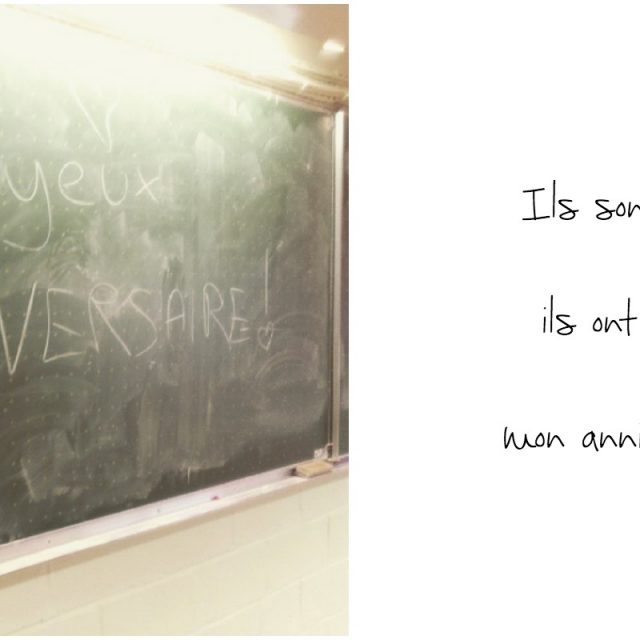 yeux
VERSAIRE!
Ils son
ils ont
mon anni